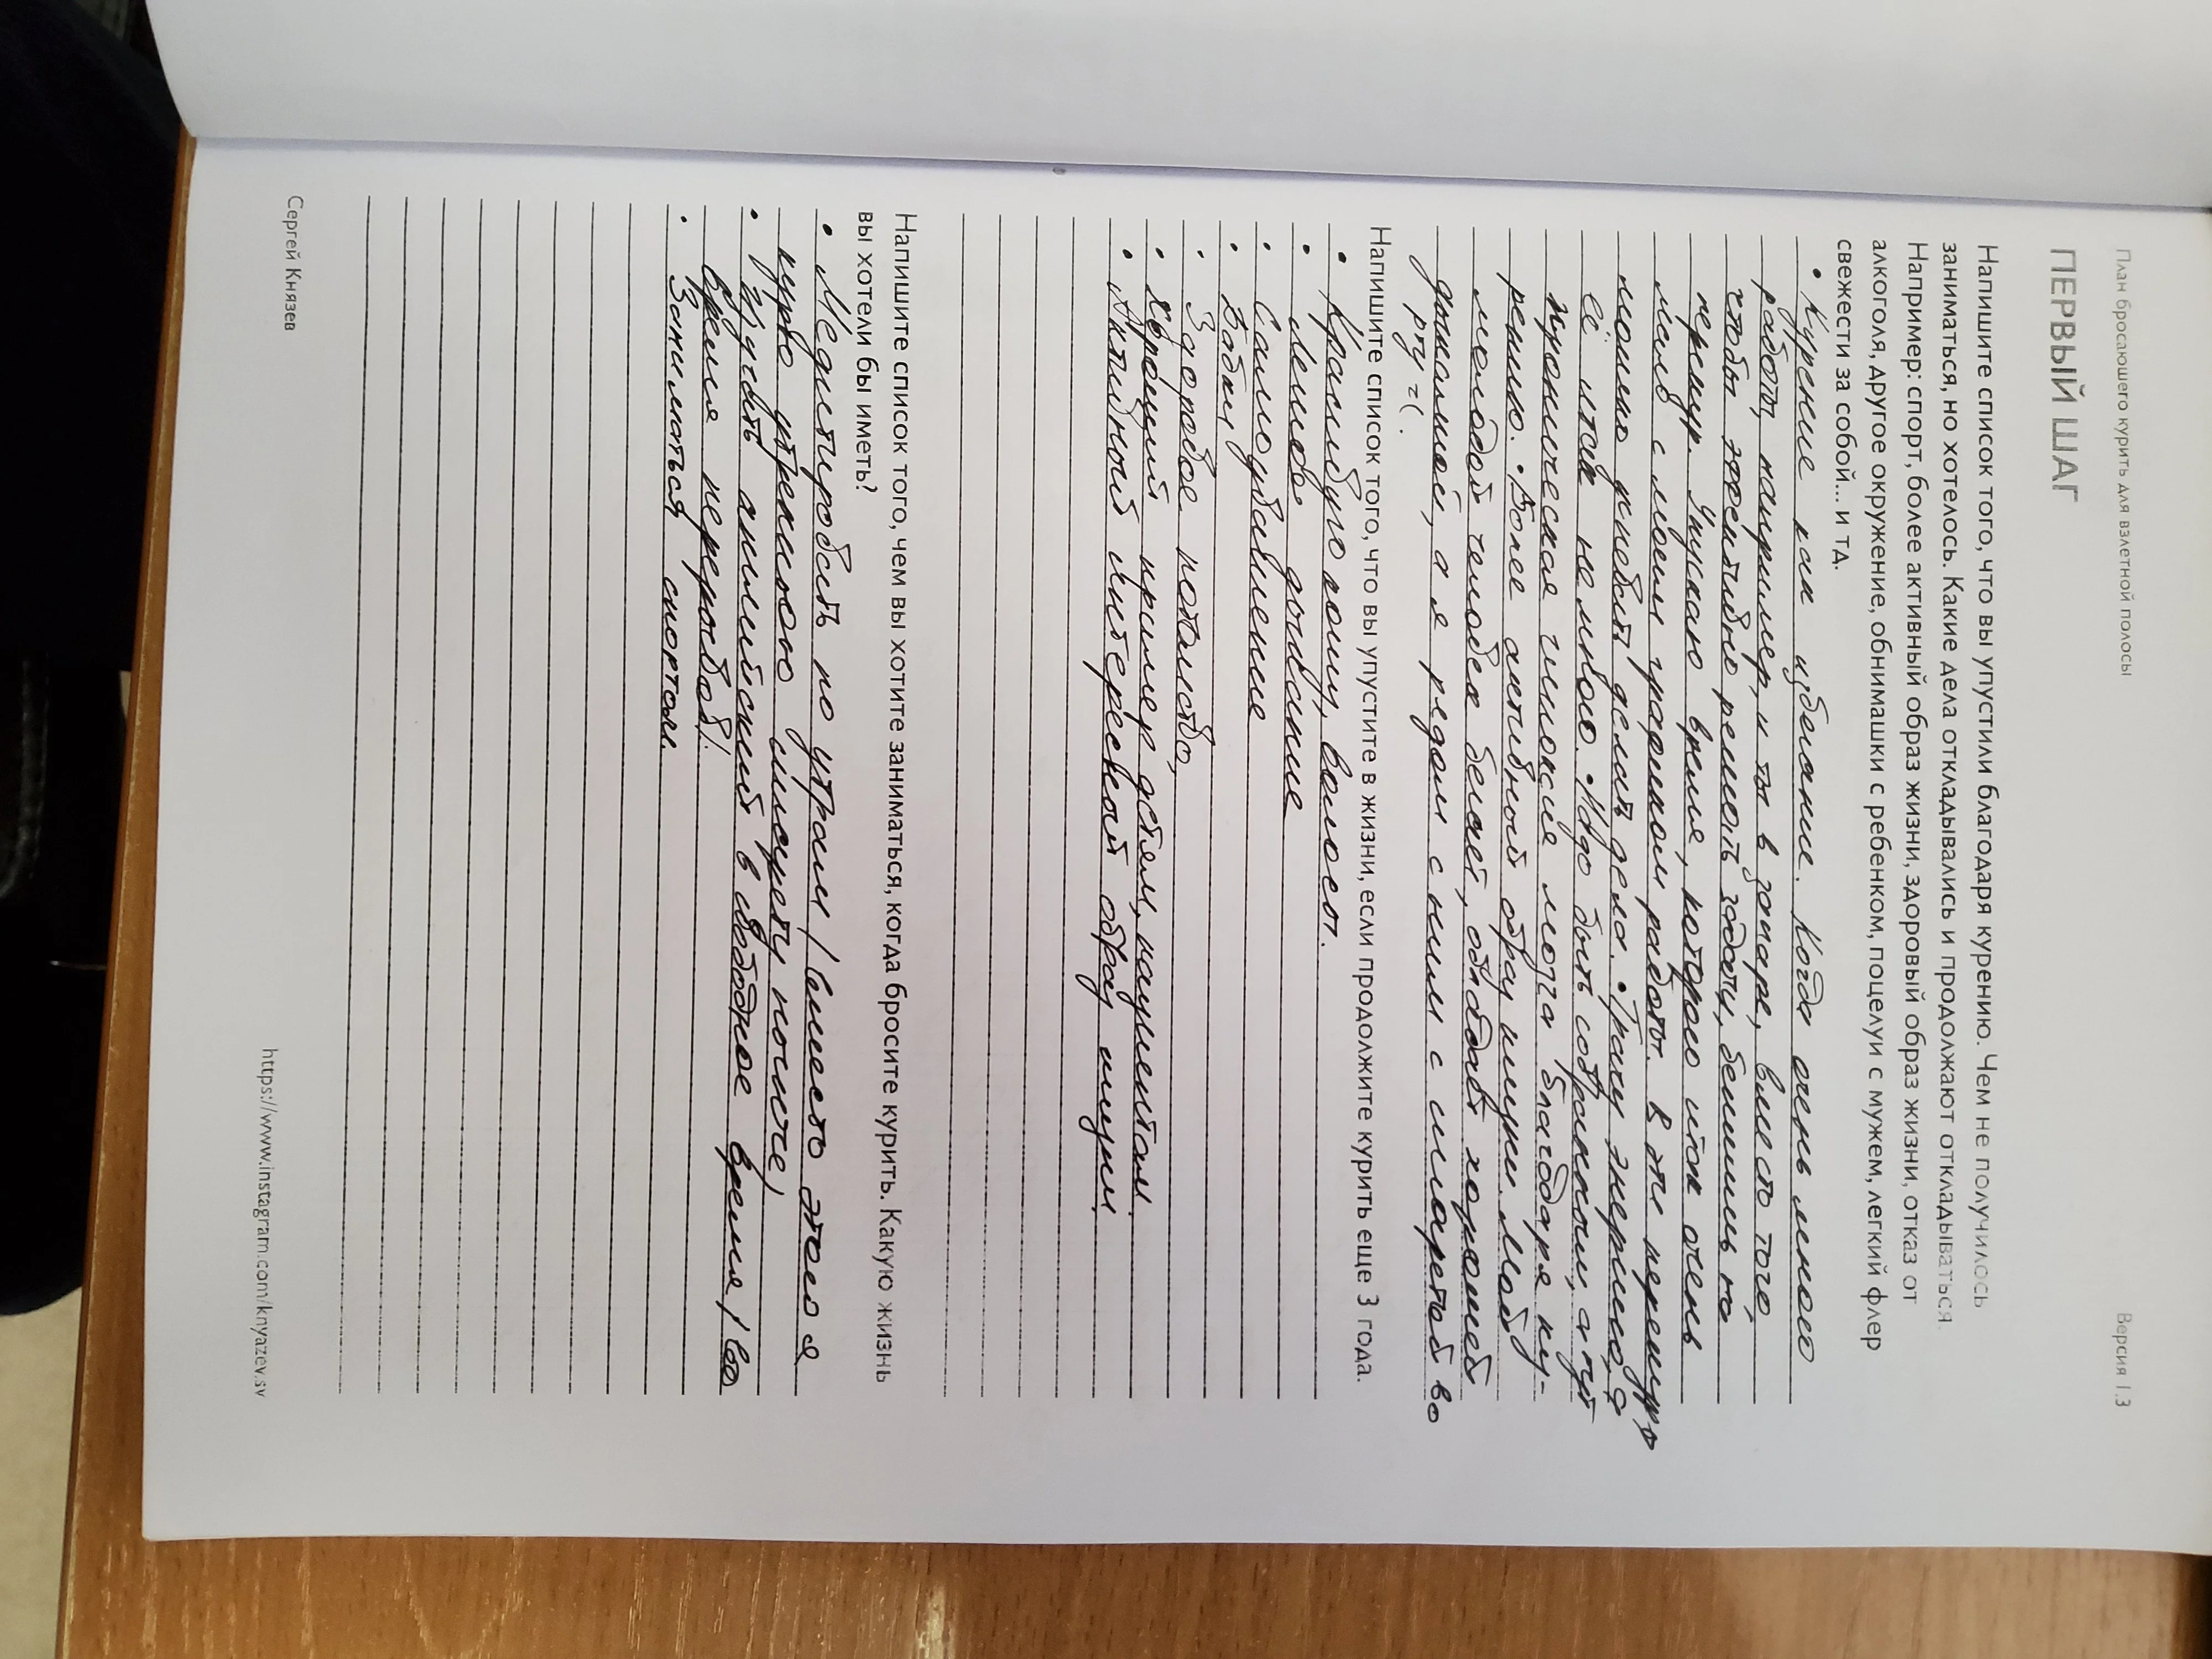 План бросающего курить для взлетной полосы
Версия 1.3
ПЕРВЫЙ ШАГ
Напишите список того, что вы упустили благодаря курению. Чем не получилось
заниматься, но хотелось. Какие дела откладывались и продолжают откладываться.
Например: спорт, более активный образ жизни, здоровый образ жизни, отказ от
алкоголя, другое окружение, обнимашки с ребенком, поцелуи с мужем, легкий флер
свежести за собой... и тд.
• Курение как избегание. Когда очень много
работы, например, и ты в запаре, вместо того,
чтобы эффективно решать задачи, бежишь на
перекур. Упускаю время, которого итак очень
мало с моим графиком работы. В эти перекуры
можно успевать делать дела. • Трачу энергию, а
её итак немного. • Надо быть собранным, а тут
хроническая гипоксия мозга благодаря ку-
рению. • Более активный образ жизни. Мой
молодой человек бегает, обладает хорошей
дыхалкой, а я рядом с ним с сигаретой во
рту =(.
Напишите список того, что вы упустите в жизни, если продолжите курить еще 3 года.
• Красивую кожу, волосы.
• Легкое дыхание
• Самоуважение
• Бабки
• Здоровое потомство,
• Хороший пример детям, пациентам.
• Активный интересный образ жизни
Напишите список того, чем вы хотите заниматься, когда бросите курить. Какую жизнь
вы хотели бы иметь?
• Медитировать по утрам / вместо этого я
курю утреннюю сигарету натощак /
• Изучать английский в свободное время / во
время перекуров /.
• Заниматься спортом.
Сергей Князев
https://www.instagram.com/knyazev.sv